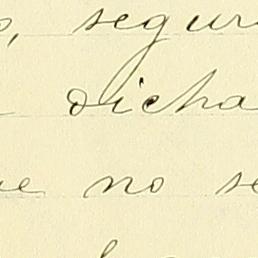 o, segur
dicha
ue no se